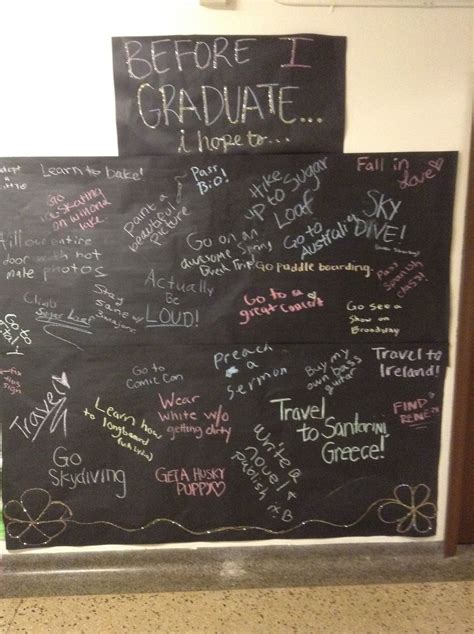 BEFORE I
GRADUATE...
i hope to...
Learn to bake!
Pass
BIO!
Hike
up to Sugar
Loaf
Fall in
Love
go
ice-skating
on
lake
Paint a
beautiful
Picture
Go on an
awesome Spring
Break Trip
Go to
Australia
SKY
DIVE!
Fill an entire
door with hot
male photos
Actually
Be
LOUD!
Go paddle boarding.
Pass
Spanish
class!
Climb
Sugar Loaf
Stay
sane w/
3 majors
Go to a
great Concert
Go see a
show on
Broadway
Go to
Comic Con
Preach
a
Sermon
Buy my
own bass
guitar
Travel to
Ireland!
Travel
Learn how
to
longboard
Wear
White w/o
getting dirty
Travel
to Santorini
Greece!
FIND
Go
Skydiving
GET A HUSKY
PUPPY
Write a
novel
Publish
it. B